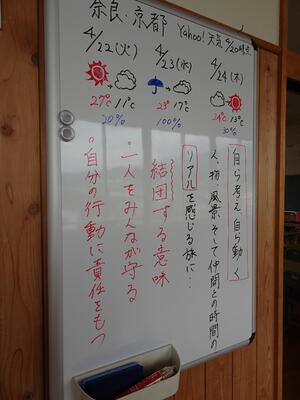 奈良・京都 Yahoo!天気 4/20時点
4/22(火)
4/23(水)
4/24(木)
27℃ 11℃
20%
23° 17℃
100%
24℃ 13℃
30%
自ら考え、自ら動く
人、物、風景、そして仲間との時間の
リアルを感じる旅に…
結団する意味
・一人をみんなが守る
・自分の行動に責任をもつ